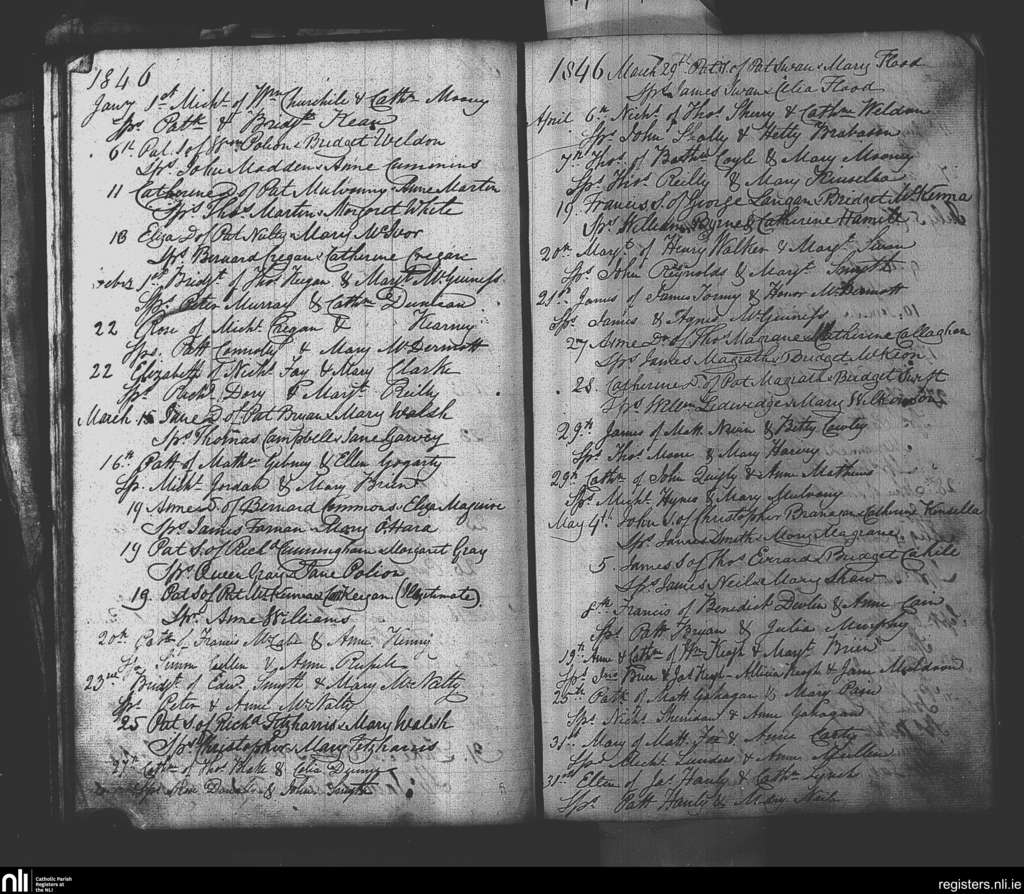 1846
Jany 1st Michl of Wm Churchile & Cathn Mooney
Sps Patk & Bridgt
6th Pat S of Wm Polion & Bridget Weldon
Sps John Madden & Anne Cummins
11 Catherine D of Pat Mulvanny & Anne Martin
Sps Thos Martin & Margaret White
18 Eliza D of Pat Nulty & Mary McIvor
Sps Bernard Cregan & Catherine Cregan
1st Bridgt of Thos Keegan & Margt McGuiness
Sps Peter Murray & Cathn Duncan
22 Rose of Michl Cregan & Kearney
Sps Patt Connolly & Mary McDermott
22 Elizabeth of Nichs Fay & Mary Clarke
Sps Richd Dory & Margt Reilly
March 15 Jane D of Pat Bryan & Mary Walsh
Sps Thomas Campbell & Jane Garvey
16th Patt of Matthw Gibney & Ellen Gogarty
Sp. Michl Jordan & Mary Brien
19 Anne D of Bernard Commons & Eliza Maguire
Sps James Farnan & Mary OHara
19 Pat S. of Richd Cunningham & Margaret Gray
Sps Queen Gray & Jane Polion
19 Pat S of Pat McKenna Keegan (Illegitimate)
Sps Anne Williams
20th Patk of Francis McCabe & Anne Kenny
Sps Cullen & Anne Russell
23rd Bridgt of Edwd Smyth & Mary McNally
Sps Peter & Anne McNally
25 Pat S. of Richd Fitzharris & Mary Walsh
Sps Christopher & Mary Fitzharris
27th Cathn of Thos Blake & Celia
Sps & John Smyth
1846 March 29th Pat S. of Pat Swan & Mary Flood
Sps James Swan & Celia Flood
April 6th Nichs of Thos Sherry & Cathn Weldon
Sps John Scally & Hetty Brabason
7th Thos of Barthw Coyle & Mary Mooney
Sps Thos Reilly & Mary Kinsella
19 Francis S. of George Langan & Bridget McKenna
Sps William Byrne & Catherine Hamill
20th Margt of Henry Walker & Margt Swan
Sps John Reynolds & Margt Smyth
21st James of James Tormy & Honor McDermott
Sps James & Agnes McGuiness
27 Anne D. of Thos Magrane & Catherine Callaghan
Sps James Magrath & Bridget McKeon
28 Catherine D. of Pat Magrath & Bridget Swift
Sps Wilson Ledwidge & Mary Wilkinson
29th James of Matt & Betty Cawley
Sps Thos Moore & Mary Harvey
29th Cathn of John Quigly & Anne Mathews
Sps Michl Hynes & Mary Mulvany
May 4th John S. of Christopher Branagan & Catherine Kinsella
Sps James Smith & Margt
5 James S of Thos Evrard & Bridget Cahile
Sps James Neil & Mary Shaw
8th Francis of Benedict Devlin & Anne Cain
Sps Patt Bryan & Julia Murphy
19th Anne & Cathn of Wm Keogh & Margt Brien
Sps Jno Brien & Jas Keogh & Jane Muldoon
25th Patk of Matt Gahagan & Mary
Sps Nichs Sheridan & Anne Gahagan
31st Mary of Matt Fox & Anne Carty
Sps Michl & Anne
31st Ellen of Jas Hanly & Cathn Lynch
Sps Patt Hanly & Mary Neile
nli
Catholic Parish
Registers at
the NLI
registers.nli.ie